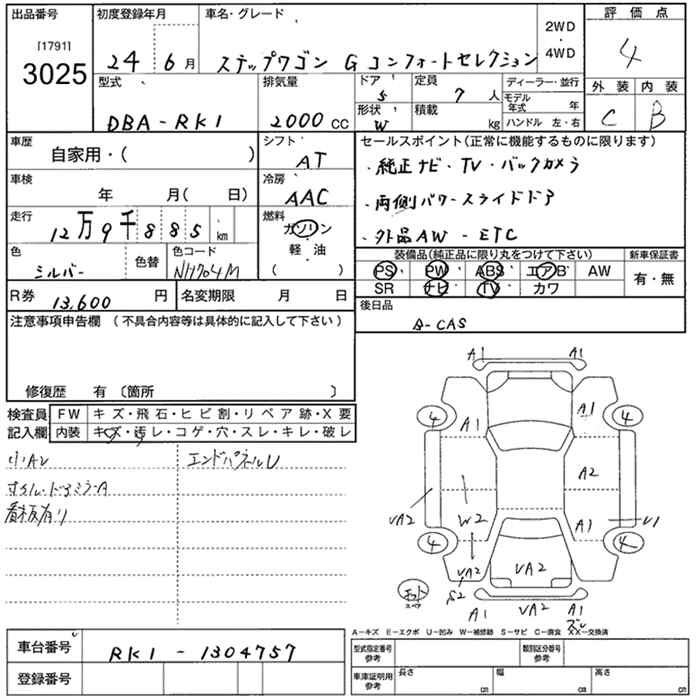 出品番号 初度登録年月 車名・グレード 2WD・4WD 評価点
[1791]
3025
24 6月 ステップワゴン G コンフォートセレクション 4
型式 排気量 ドア 5 定員 7人 ディーラー・並行 外装 内装
DBA-RK1 2000cc 形状 W 積載 kg モデル年式 年 C B
ハンドル 左・右
車歴 シフト セールスポイント(正常に機能するものに限ります)
自家用・( ) AT ・純正ナビ・TV・バックカメラ
車検 冷房
年 月( 日) AAC ・両側パワースライドドア
走行 燃料
12万9千885km ガソリン ・外品AW-ETC
色 色替 色コード 軽・油 装備品(純正品に限り丸をつけて下さい) 新車保証書
シルバー NH704M ( ) PS PW ABS エアB AW 有・無
SR ナビ TV カワ
R券 13,600円 名変期限 月 日 後日品
B-CAS
注意事項申告欄 (不具合内容等は具体的に記入して下さい)
修復歴 有 〔箇所 〕
検査員 FW キズ・飛石・ヒビ割・リペア跡・X要
記入欄 内装 キズ・汚レ・コゲ・穴・スレ・キレ・破レ
小A2 エンドパネルU
ホイル・ドアミラーA
看板有り
A1 A1
4 A1 A1 4
A2
VA2 W2 A1 U1
4 VA2 VA2 4
S2
スペア
A1 VA2 A1
A-キズ E-エクボ U-凹み W-補修跡 S-サビ C-腐食 XX-交換済
車台番号 RK1-1304757
型式指定番号 参考 類別区分番号 参考
登録番号
車庫証明用 参考 長さ cm 幅 cm 高さ cm